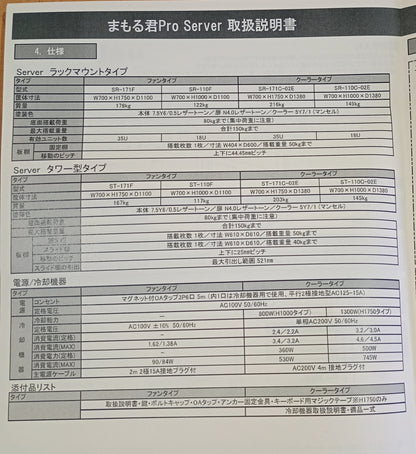 まもる君Pro Server 取扱説明書
4. 仕様
Server ラックマウントタイプ
タイプ ファンタイプ クーラータイプ
型式 SR-171F SR-110F SR-171C-02E SR-110C-02E
筐体寸法 W700×H1750×D1100 W700×H1000×D1100 W700×H1750×D1380 W700×H1000×D1380
質量 178kg 122kg 216kg 149kg
塗装色 本体 7.5Y6/0.5レザートーン/扉 N4.0レザートーン/クーラー 5Y7/1 (マンセル)
底面搭載荷重 80kgまで(集中荷重に注意)
最大搭載重量 合計130kgまで
有効ユニット数 35U 18U 35U 18U
棚板 固定棚 搭載枚数 1枚/寸法 W404×D600/搭載重量 50kgまで
移動のピッチ 上下に44.45mmピッチ
Server タワー型タイプ
タイプ ファンタイプ クーラータイプ
型式 ST-171F ST-110F ST-171C-02E ST-110C-02E
筐体寸法 W700×H1750×D1100 W700×H1000×D1100 W700×H1750×D1380 W700×H1000×D1380
質量 167kg 117kg 203kg 145kg
塗装色 本体 7.5Y6/0.5レザートーン/扉 N4.0レザートーン/クーラー 5Y7/1 (マンセル)
底面搭載荷重 80kgまで(集中荷重に注意)
最大搭載重量 合計150kgまで
固定棚 搭載枚数 1枚/寸法 W610×D610/搭載重量 50kgまで
棚板 スライド棚 搭載枚数 1枚/寸法 W610×D610/搭載重量 40kgまで
移動のピッチ 上下に25mmピッチ
スライド棚の引出 最大引出し範囲 521mm
電源/冷却機器
タイプ ファンタイプ クーラータイプ
電源 コンセント マグネット付OAタップ3P6口 5m (内1口は冷却機器用で使用、平行2極接地型AC125-15A)
定格電圧 AC100V 50/60Hz
冷却機器 冷却能力 800W(H1000タイプ) 1300W(H1750タイプ)
定格電圧 AC100V ±10% 50/60Hz 単相AC200V 50/60Hz
消費電流(定格) 2.4/2.2A 3.2/3.0A
消費電流(MAX) 1.62/1.38A 3.4/3.3A 4.6/4.5A
消費電力(定格) 360W 500W
消費電力(MAX) 90/84W 530W 745W
主電源ケーブル 2m 2極15A接地プラグ付 AC200V 4m 接地プラグ付
添付品リスト
タイプ ファンタイプ クーラータイプ
取扱説明書・鍵・ボルトキャップ・OAタップ・アンカー固定金具・キーボード用マジックテープ※H1750のみ
冷却機器取扱説明書・備品一式